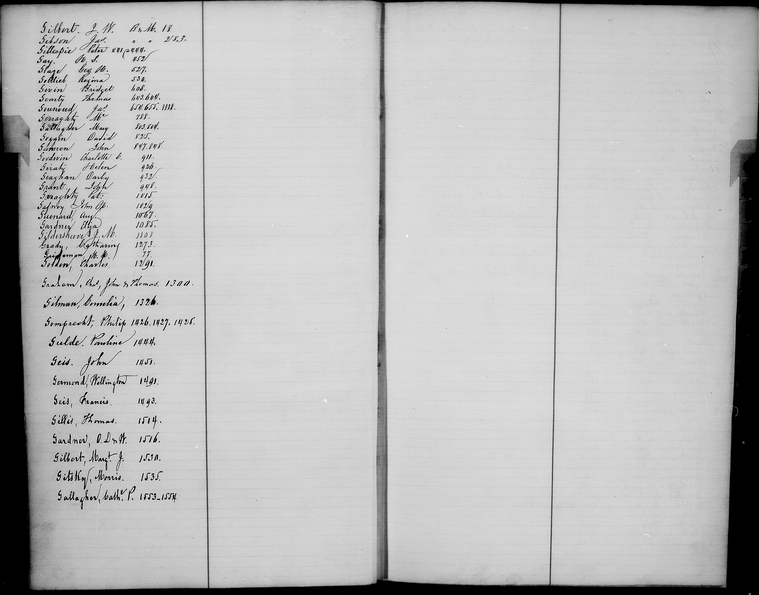 Gilbert. J. W. B & M. 18
Gibson Jas " " 283.
Gillespie Peter 441 944.
Gay. 852
Gage Geo H. 527.
Gottlieb Regina 530.
Given Bridget 606.
Thomas 603.604.
Jas 654.655. 1118.
Geraghty Mr 788.
Gallagher Mary 803.804.
Goggin David 825.
Glennon John 897.898
Goodwin Charlotte E. 911.
Geraty Helen 926.
Geaghan Darby 932.
Grant Joseph 948.
Geraghty Pat. 1015
Gafney John 1029
Guenard, Aug 1067.
Gardner 1085.
Gildersleeve J. M. 1101
Grady, Catharine 1273.
77
Golden, Charles 1291.
Graham, Chas, John & Thomas. 1300.
Gilman, Cornelia, 1326.
Gomprecht, Philip 1426.1427.1428.
Gulde. Pauline 1444.
Geis. John 1451.
Germond, Wellington 1491.
Geis, Francis. 1493.
Gillis, Thomas. 1514.
Gardner, O. D & W. 1516.
Gilbert, Margt J. 1530.
Gitsky, Morris. 1535.
Gallagher, Cath. P. 1553-1554